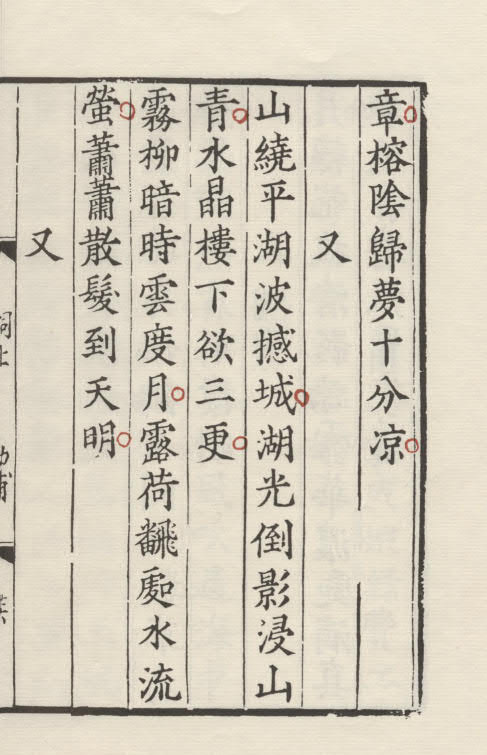 章榕陰歸夢十分凉
又
山繞平湖波撼城湖光倒影浸山
青水晶樓下欲三更
霧柳暗時雲度月露荷飜處水流
螢蕭蕭散髮到天明
又